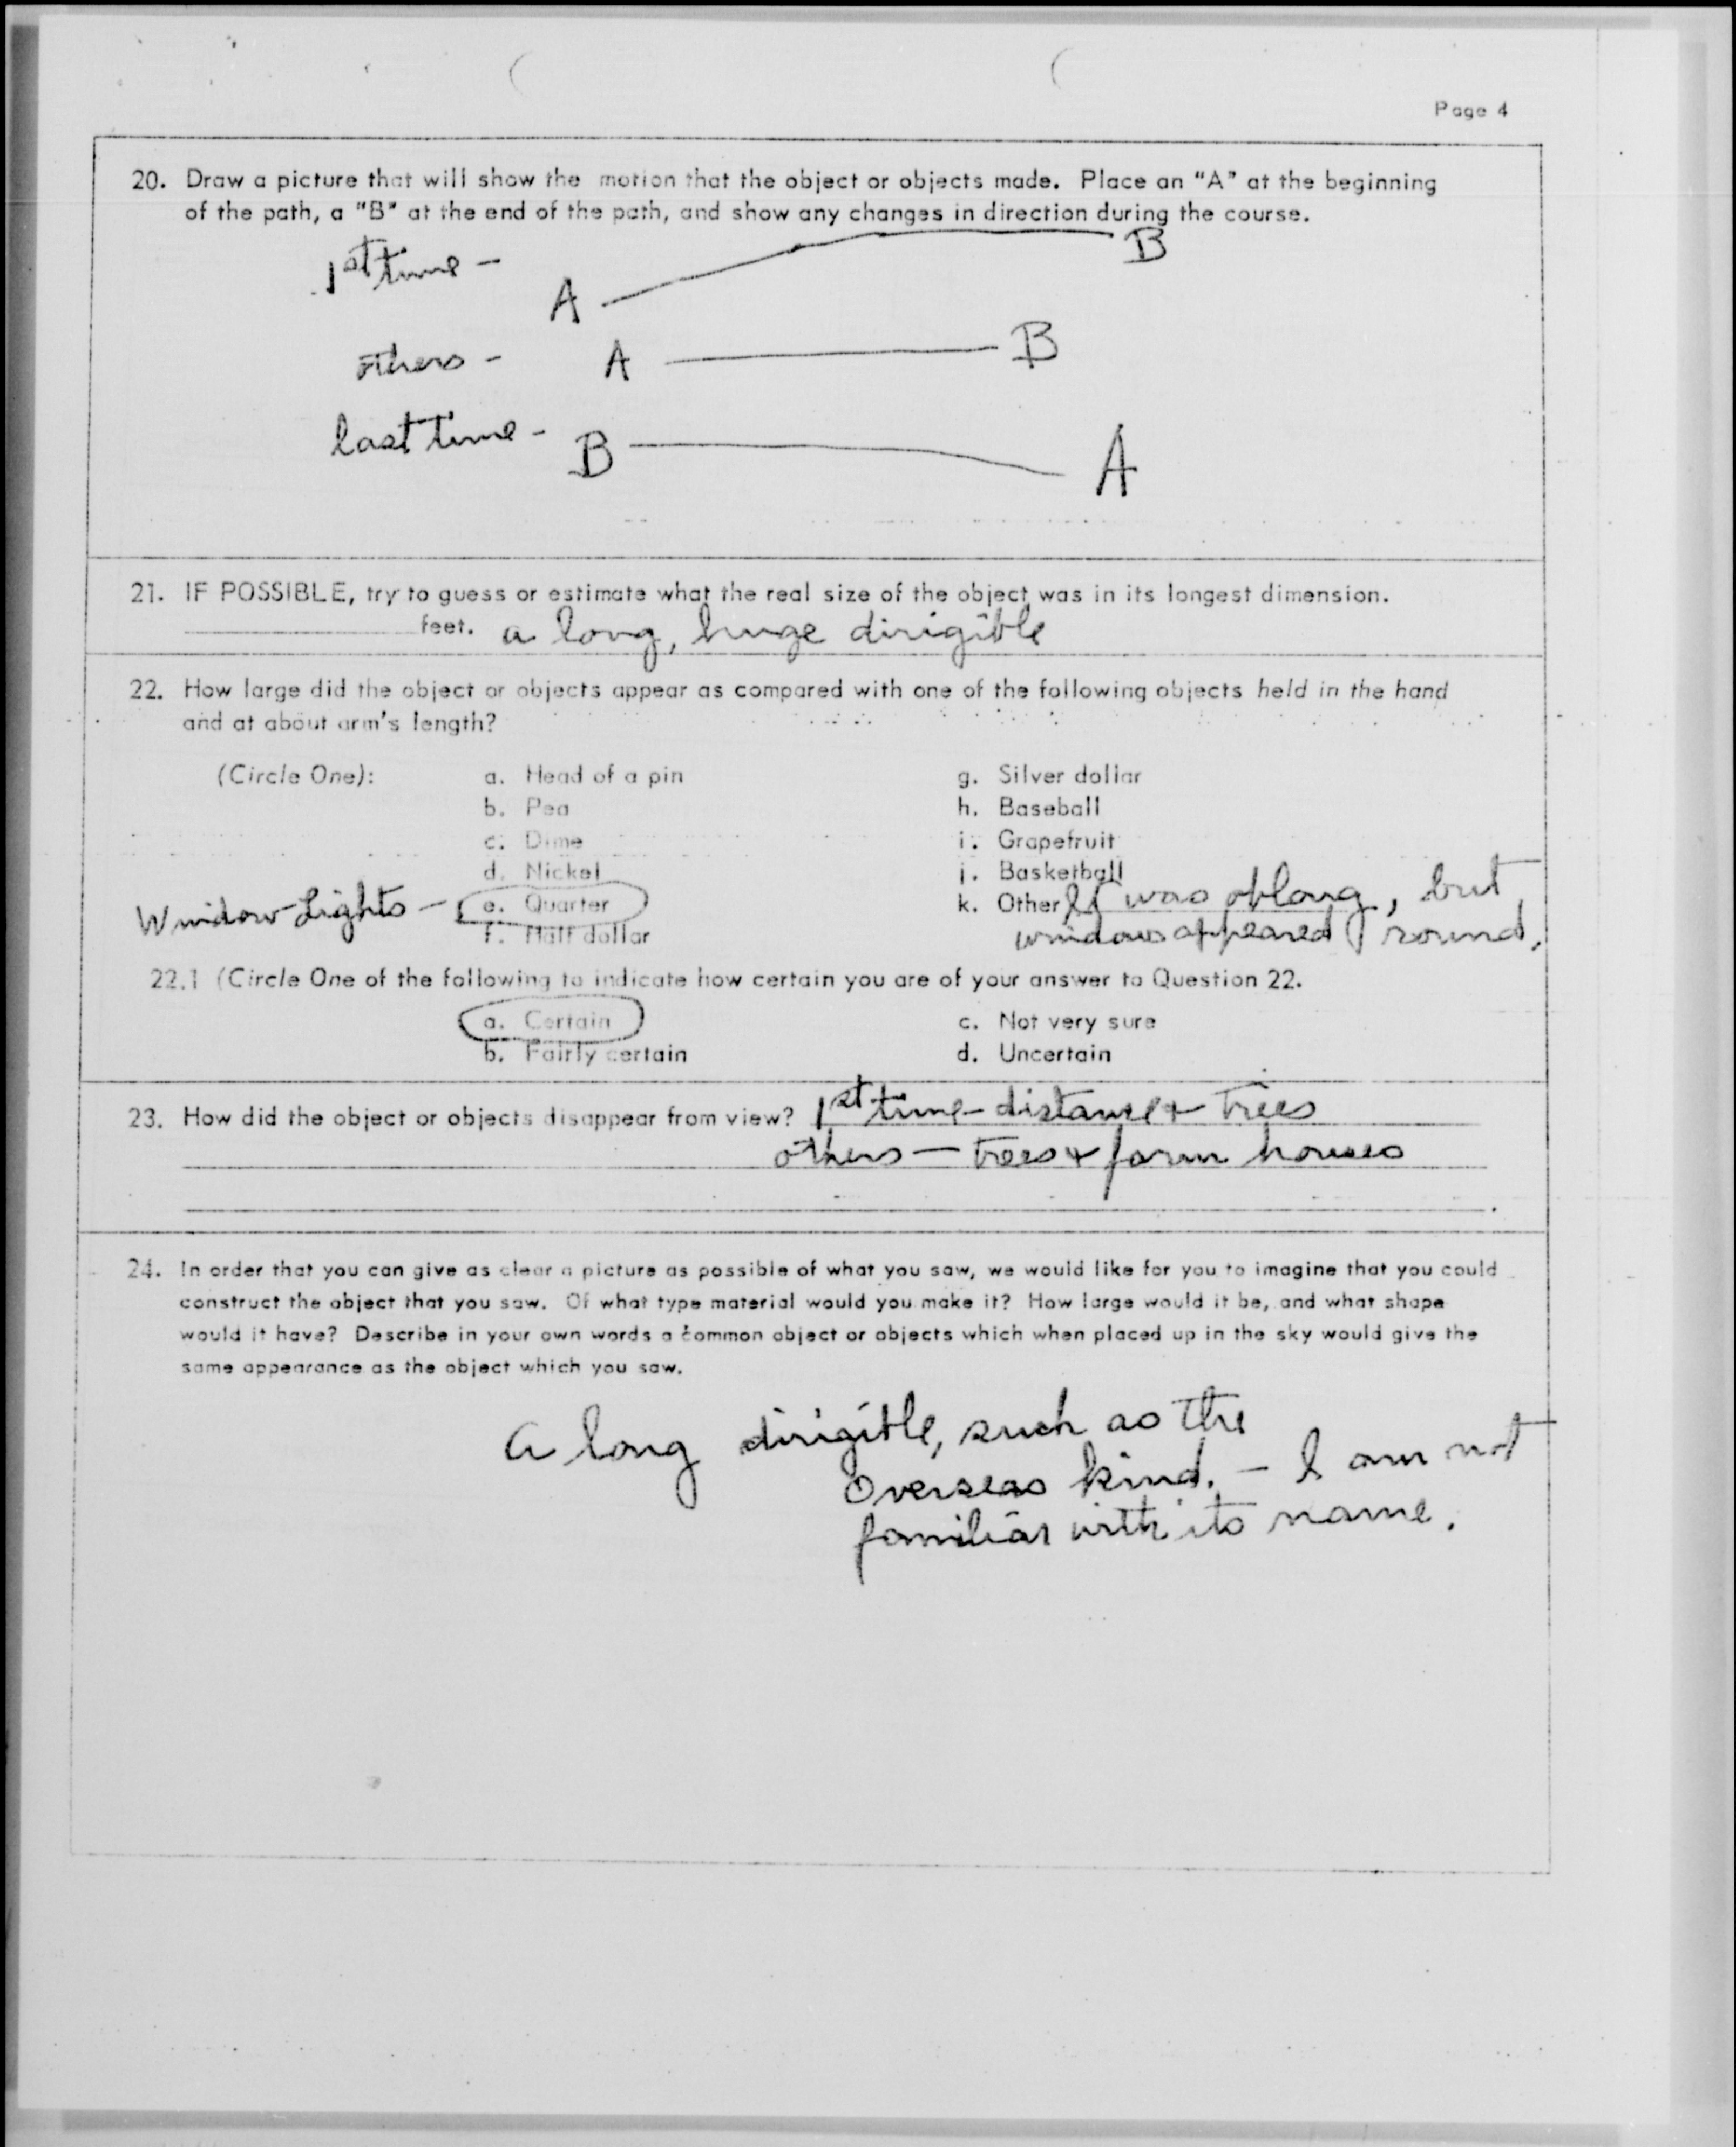 Page 4
20. Draw a picture that will show the motion that the object or objects made. Place an "A" at the beginning
of the path, a "B" at the end of the path, and show any changes in direction during the course.
1st time -
A B
others - A B
last time - B A
21. IF POSSIBLE, try to guess or estimate what the real size of the object was in its longest dimension.
feet. a long, huge dirigible
22. How large did the object or objects appear as compared with one of the following objects held in the hand
and at about arm's length?
(Circle One): a. Head of a pin g. Silver dollar
b. Pea h. Baseball
c. Dime i. Grapefruit
d. Nickel j. Basketball
Window Lights - e. Quarter k. Other It was oblong, but
f. Half dollar windows appeared round.
22.1 (Circle One of the following to indicate how certain you are of your answer to Question 22.
a. Certain c. Not very sure
b. Fairly certain d. Uncertain
23. How did the object or objects disappear from view? 1st time - distance + trees
others - trees + farm houses
24. In order that you can give as clear a picture as possible of what you saw, we would like for you to imagine that you could
construct the object that you saw. Of what type material would you make it? How large would it be, and what shape
would it have? Describe in your own words a common object or objects which when placed up in the sky would give the
same appearance as the object which you saw.
a long dirigible, such as the
overseas kind. - I am not
familiar with its name.